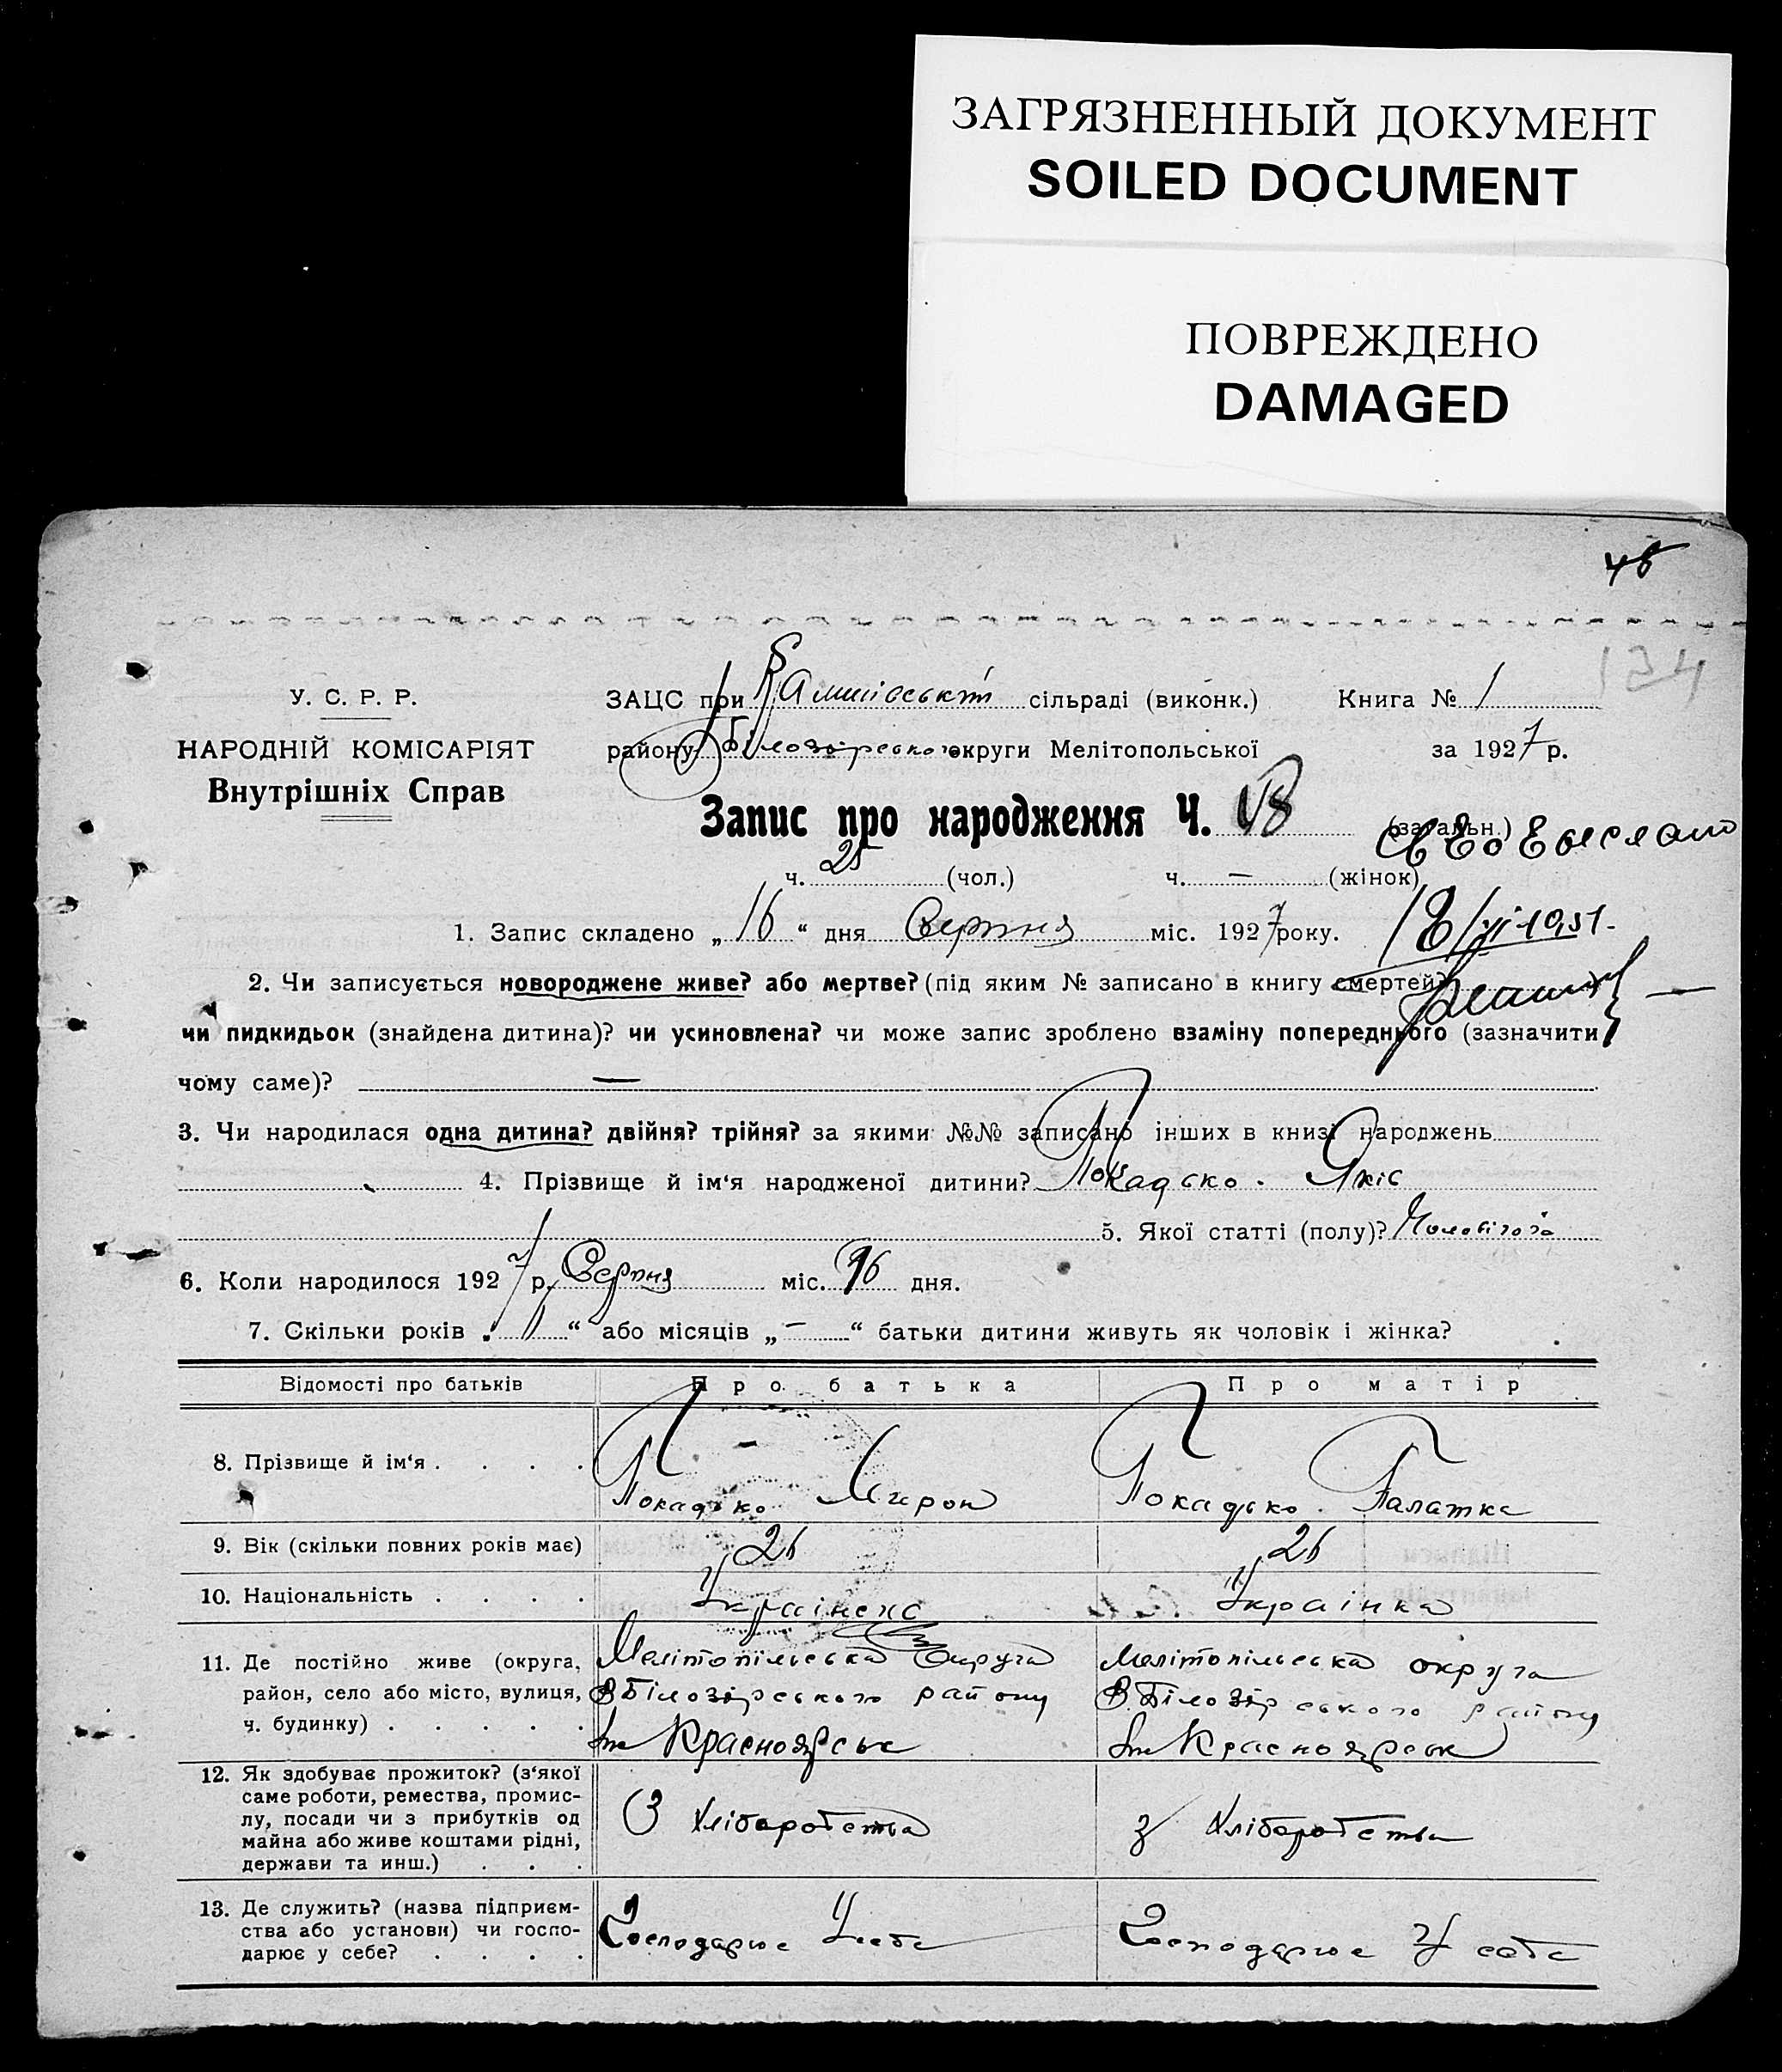 ЗАГРЯЗНЕННЫЙ ДОКУМЕНТ
SOILED DOCUMENT
ПОВРЕЖДЕНО
DAMAGED
46
134
У. С. Р. Р.
НАРОДНІЙ КОМІСАРІЯТ
Внутрішніх Справ
ЗАЦС при сільраді (виконк.) Книга № 1
району Білозірського округи Мелітопольської за 1927 р.
Запис про народження Ч. 48 (загальн.)
ч. 25 (чол.) ч. — (жінок)
1. Запис складено „16“ дня Серпня міс. 1927 року.
2. Чи записується новороджене живе? або мертве? (під яким № записано в книгу смертей) —
чи пидкидьок (знайдена дитина)? чи усиновлена? чи може запис зроблено взаміну попереднього (зазначити
чому саме)? —
3. Чи народилася одна дитина? двійня? трійня? за якими №№ записано інших в книзі народжень
4. Прізвище й ім‘я народженої дитини? Покадько. Яків
5. Якої статті (полу)?
6. Коли народилося 1927 р. Серпня міс. 16 дня.
7. Скільки років „ “ або місяців „—“ батьки дитини живуть як чоловік і жінка?
Відомості про батьків Про батька Про матір
8. Прізвище й ім‘я . . . . Покадько Мирон Покадько. Палажка
9. Вік (скільки повних років має) 26 26
10. Національність . . . . Українець Українка
11. Де постійно живе (округа, Мелітопільська Округа Мелітопільська округа
район, село або місто, вулиця, В Білозірського району В Білозірського району
ч. будинку) . . . . . Красноярськ Красноярськ
12. Як здобуває прожиток? (з‘якої
саме роботи, ремества, промис-
лу, посади чи з прибутків од З Хліборобства з Хліборобства
майна або живе коштами рідні,
держави та инш.) . . .
13. Де служить? (назва підприєм-
ства або установи) чи госпо- Господарює У себе Господарює У себе
дарює у себе? . . . .